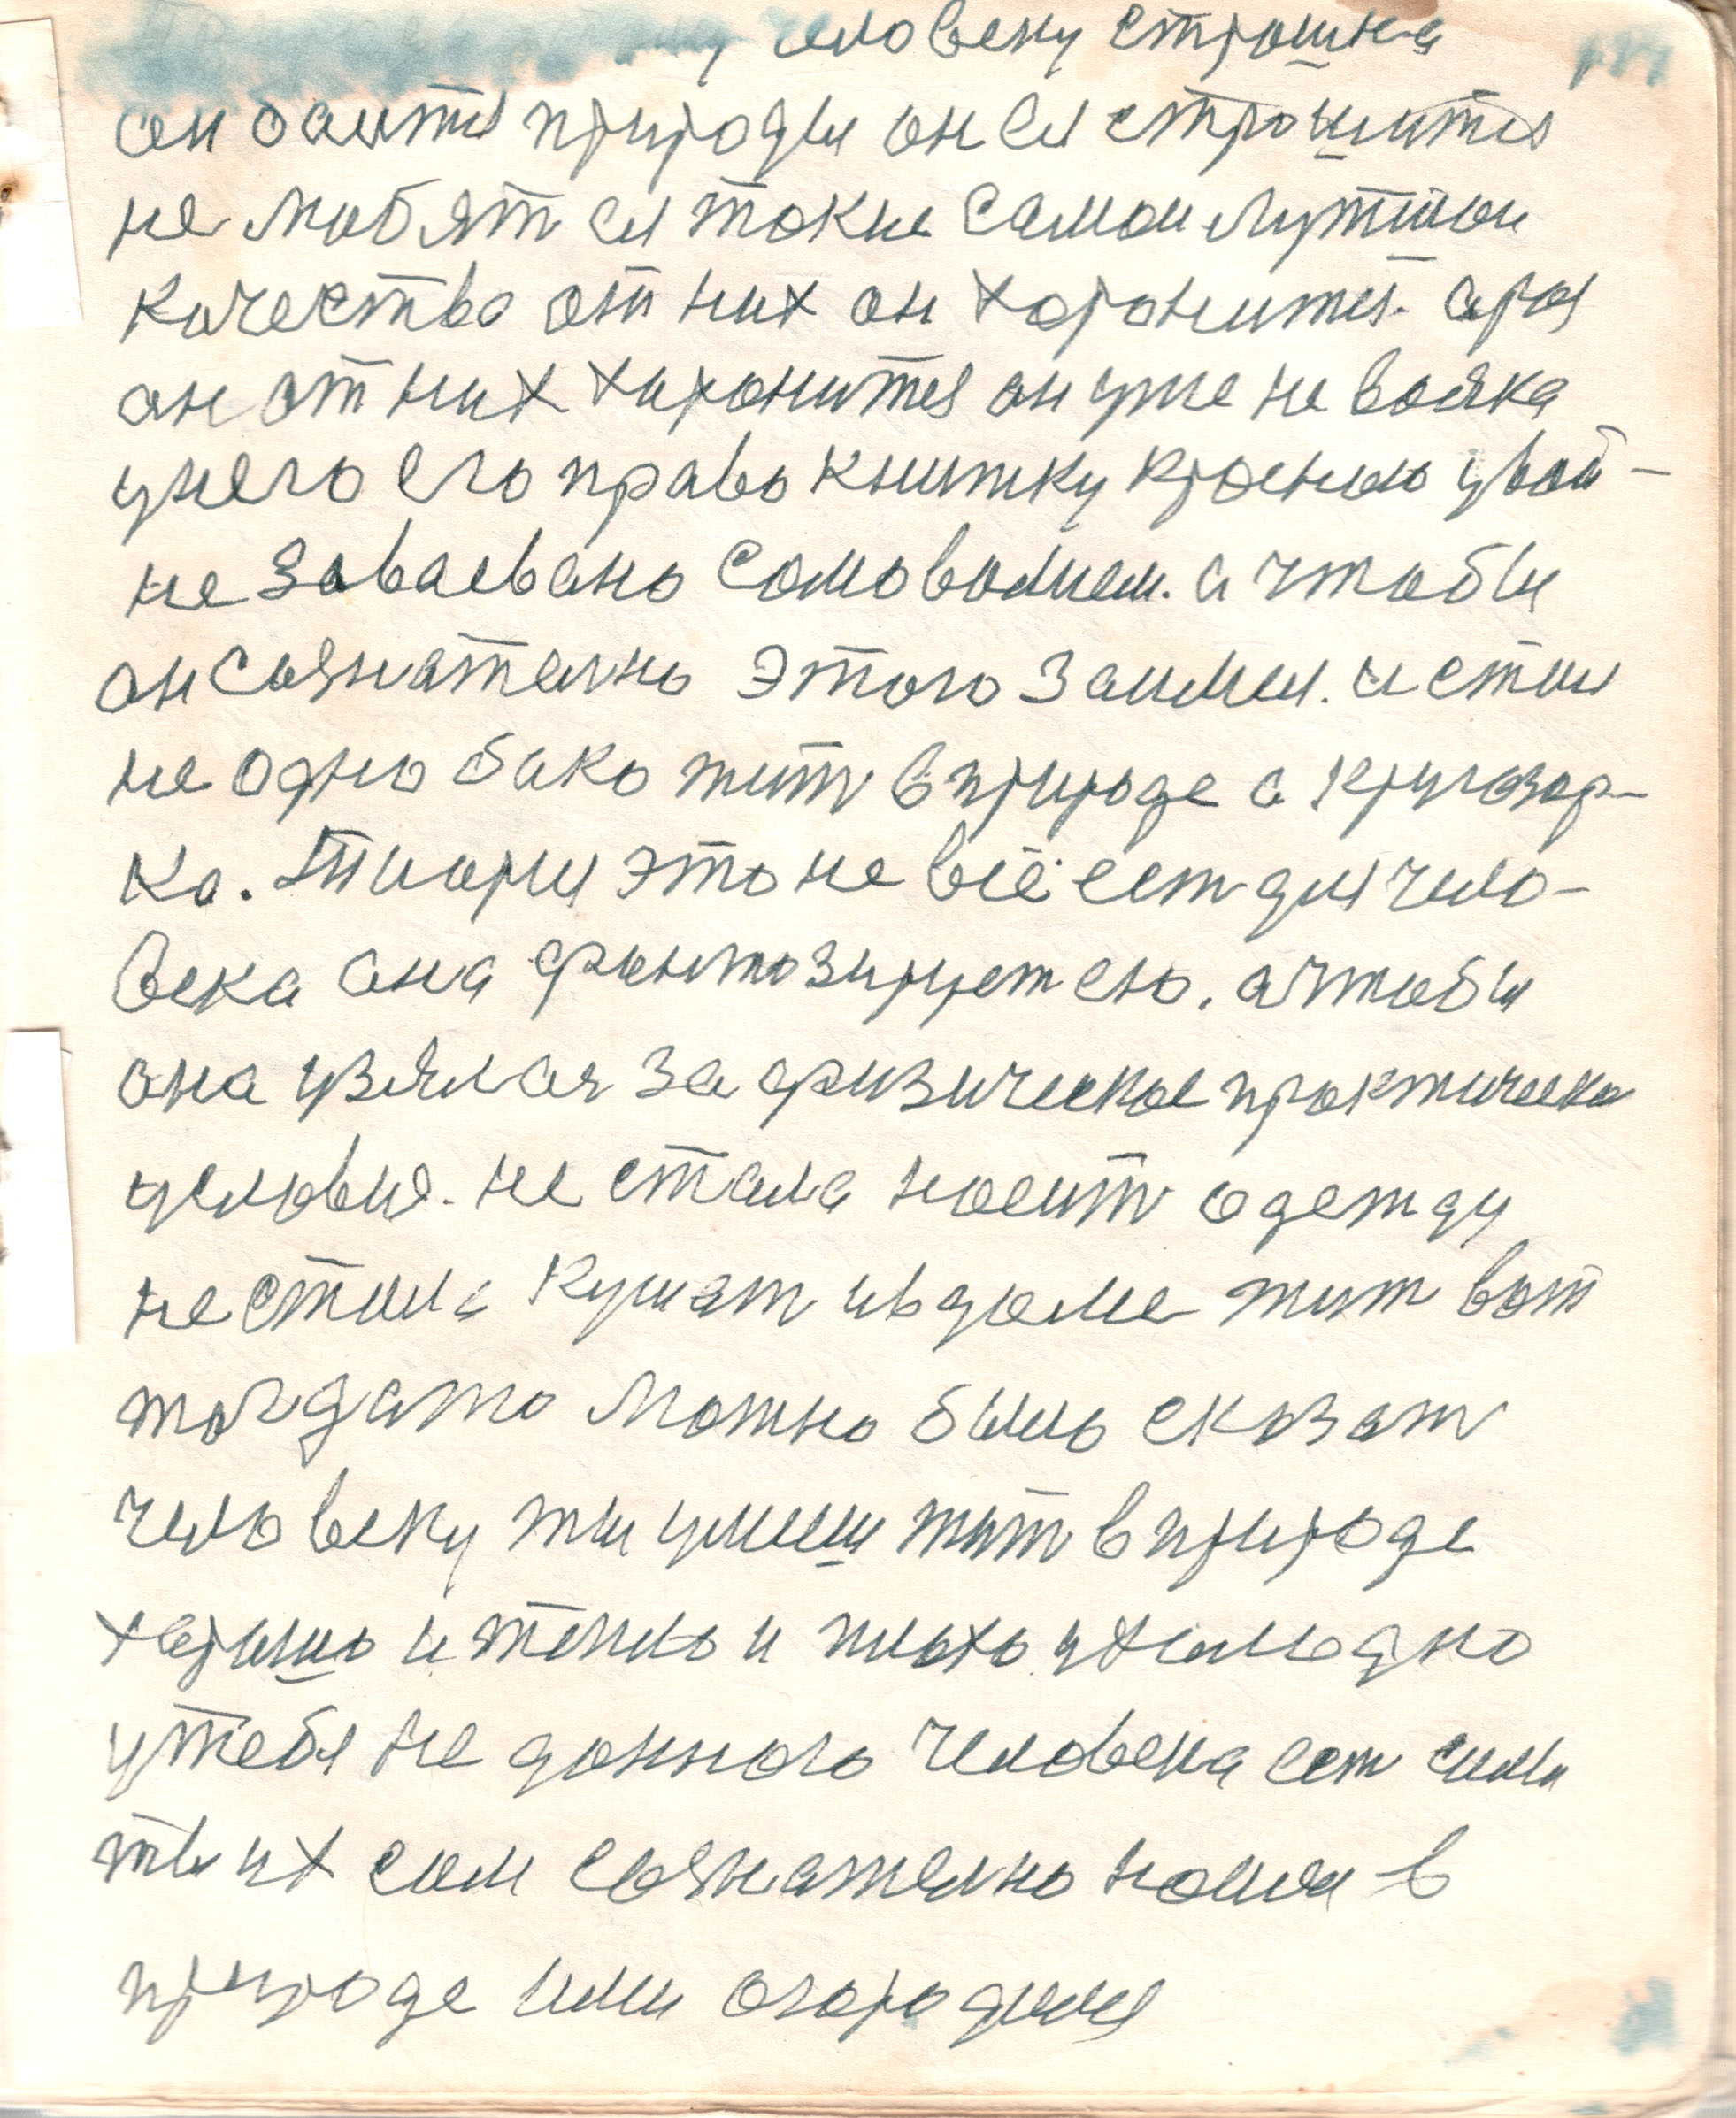 человеку страшна
он баится природы он ея страшится
не любят ея такие самои лутшои
качества от них он хоронится. а раз
он от них харонится он уже не вояка
у него его право книжку кроеную у вой-
не заваевано самоволием. а чтобы
он сазнателно этого занимал. и стал
не однобако жит в природе а кругзор-
ка. Тиория это не всё ест для чело-
века она фантазирует ею. а чтобы
она узялася за физическое практическа
условия. не стала носит одежду
не стала кушат и в доме жит вот
тогдато можно было сказат
человеку ты умееш жит в природе
харашо и тепло и плохо и холодно
у тебя не донного человека ест силы
ты их сам сазнателно нашол в
природе или огородился